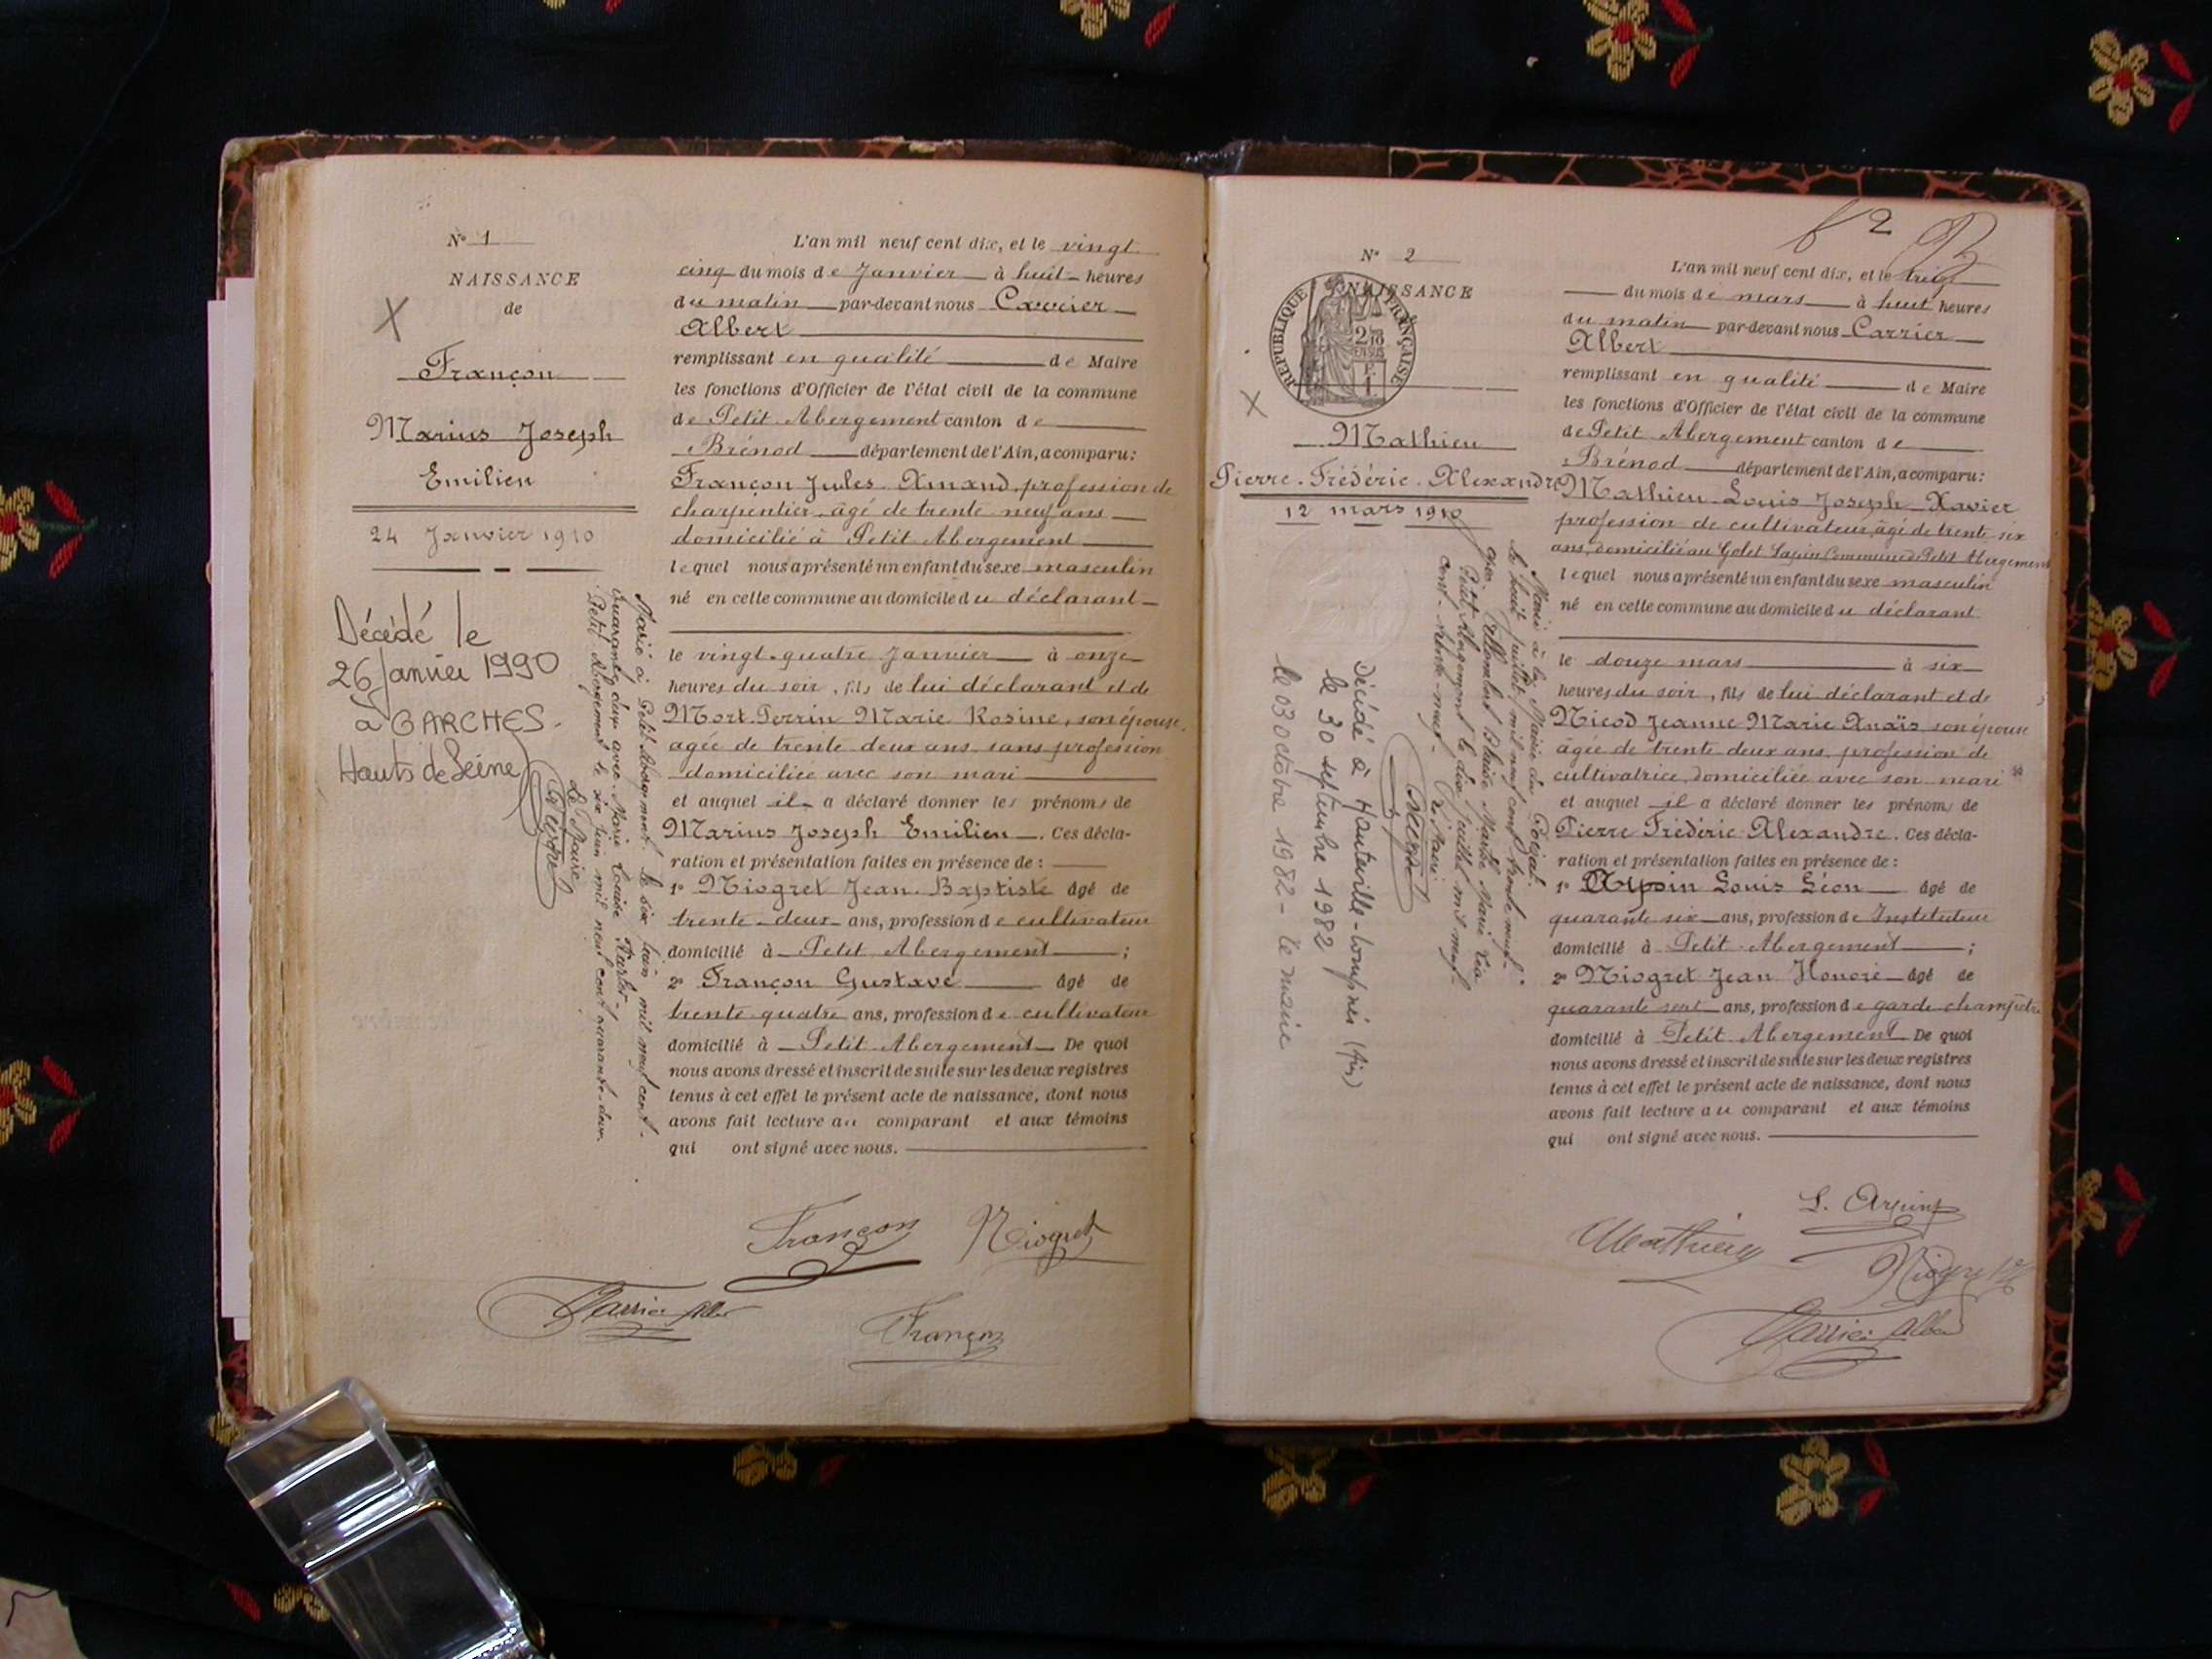 N° 1
NAISSANCE
de
Françon
Marius Joseph
Emilien
24 Janvier 1910
Décédé le
26 Janvier 1990
à GARCHES.
Hauts de Seine
Marié à Petit Abergement le six juin mil neuf cent
quarante deux avec Marie Louise
Petit Abergement le six juin mil neuf cent quarante-deux.
Le Maire
L'an mil neuf cent dix, et le vingt
cinq du mois de Janvier à huit heures
du matin par-devant nous Carrier
Albert
remplissant en qualité de Maire
les fonctions d'Officier de l'état civil de la commune
de Petit Abergement canton de
Brénod département de l'Ain, a comparu:
Françon Jules Amand, profession de
charpentier, âgé de trente neuf ans
domicilié à Petit Abergement
lequel nous a présenté un enfant du sexe masculin
né en cette commune au domicile du déclarant
le vingt-quatre Janvier à onze
heures du soir, fils de lui déclarant et de
Mort-Perrin Marie Rosine, son épouse,
agée de trente deux ans sans profession
domiciliée avec son mari
et auquel il a déclaré donner les prénoms de
Marius Joseph Emilien. Ces décla-
ration et présentation faites en présence de :
1° Miogret Jean-Baptiste âgé de
trente-deux ans, profession de cultivateur
domicilié à Petit Abergement ;
2° Françon Gustave âgé de
trente quatre ans, profession de cultivateur
domicilié à Petit Abergement De quoi
nous avons dressé et inscrit de suite sur les deux registres
tenus à cet effet le présent acte de naissance, dont nous
avons fait lecture au comparant et aux témoins
qui ont signé avec nous.
Françon Miogret
Carrier Albert
Françon
f 2
N° 2
NAISSANCE
RÉPUBLIQUE FRANÇAISE
Mathieu
Pierre-Frédéric-Alexandre
12 mars 1910
Marié à la Mairie du
le huit juillet mil neuf cent trente neuf
avec Blaise Marthe Marie
Petit Abergement le dix juillet mil neuf
cent-trente-neuf. Le Maire
Décédé à Hauteville-Lompnes (Ain)
le 30 septembre 1982
le 03 octobre 1982 - le maire
L'an mil neuf cent dix, et le treize
du mois de mars à huit heures
du matin par-devant nous Carrier
Albert
remplissant en qualité de Maire
les fonctions d'Officier de l'état civil de la commune
de Petit Abergement canton de
Brénod département de l'Ain, a comparu:
Mathieu Louis Joseph Xavier
profession de cultivateur, âgé de trente six
ans, domicilié au Golet Commune de Petit Abergement
lequel nous a présenté un enfant du sexe masculin
né en cette commune au domicile du déclarant
le douze mars à six
heures du soir, fils de lui déclarant et de
Nicod Jeanne Marie Anaïs son épouse
âgée de trente deux ans, profession de
cultivatrice, domiciliée avec son mari
et auquel il a déclaré donner les prénoms de
Pierre Frédéric Alexandre. Ces décla-
ration et présentation faites en présence de :
1° Arpin Louis Léon âgé de
quarante six ans, profession de Instituteur
domicilié à Petit-Abergement ;
2° Miogret Jean Honoré âgé de
quarante sept ans, profession de garde champêtre
domicilié à Petit Abergement De quoi
nous avons dressé et inscrit de suite sur les deux registres
tenus à cet effet le présent acte de naissance, dont nous
avons fait lecture au comparant et aux témoins
qui ont signé avec nous.
L. Arpin
Mathieu
Miogret
Carrier Albert